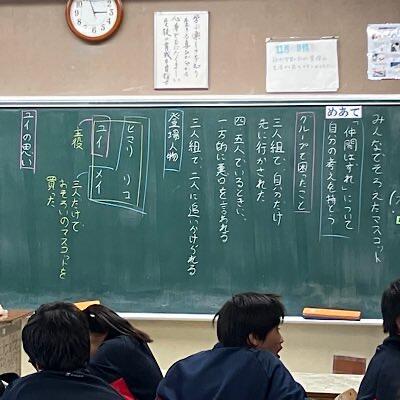 みんなでそろえたマスコット
めあて
「仲間はずれ」について
自分の考えを持とう
グループで困ったこと
三人組で、自分だけ
先に行かされた
四、五人でいるときに、
一方的に悪口を言われる
三人組で、二人に追いかけられる
登場人物
ヒマリ リコ
ユイ メイ
主役
三人だけで、
おそろいのマスコットを
買った。
ユイの思い